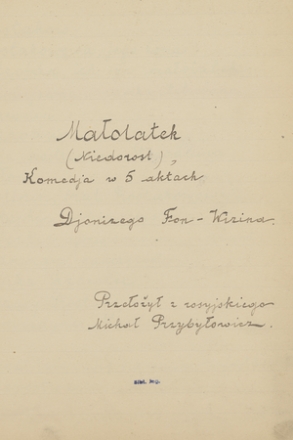 Małolatek
(Niedorosl),
Komedja w 5 aktach
Djonizego Fon-Wizina.
Przełożył z rosyjskiego
Michał Przybyłowicz.
Bibl. Jag.